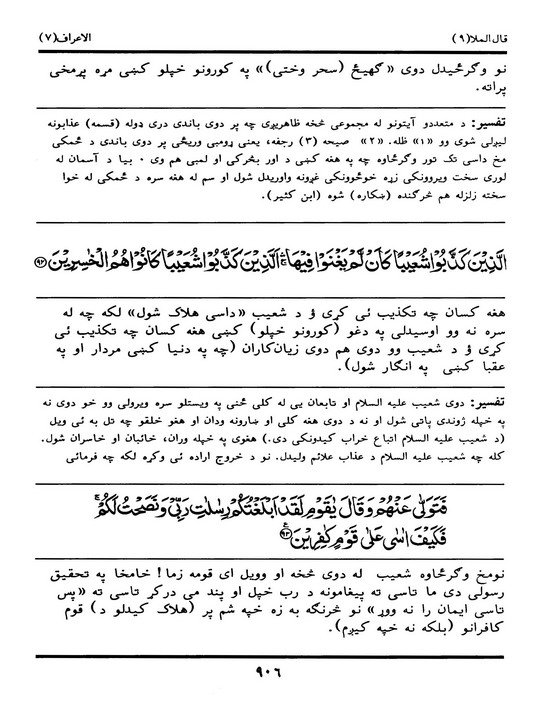 قال الملا (٩) الاعراف (٧)
نو وګرځېدل دوی «ګهیځ (سحر وختی)» په کورونو خپلو کښی مړه پرمخی
پراته.
تفسیر: د متعددو آیتونو له مجموعی څخه ظاهریږی چه پر دوی باندی دری ډوله (قسمه) عذابونه
لیږلی شوی وو «۱» ظله. «۲» صیحه (۳) رجفه، یعنی ړومبی وریځی پر دوی باندی د ځمکی
مخ داسی تک تور وګرځاوه چه په هغه کښی د اور بڅرکی او لمبی هم وی ٠ بیا د آسمان له
لوری سخت ویروونکی زړه خوځوونکی غږونه واوریدل شول او سم له هغه سره د ځمکی له خوا
سخته زلزله هم څرګنده (ښکاره) شوه (ابن کثیر).
الَّذِيْنَ كَذَّبُوْا شُعَيْبًا كَاَنْ لَّمْ يَغْنَوْا فِيْهَا ۚ اَلَّذِيْنَ كَذَّبُوْا شُعَيْبًا كَانُوْا هُمُ الْخٰسِرِيْنَ ﴿٩٢﴾
هغه کسان چه تکذیب ئی کړی ؤ د شعیب «داسی هلاک شول» لکه چه له
سره نه وو اوسیدلی په دغو (کورونو خپلو) کښی هغه کسان چه تکذیب ئی
کړی ؤ د شعیب وو دوی هم دوی زیان‌کاران (چه په دنیا کښی مردار او په
عقبا کښی په انګار شول).
تفسیر: دوی شعیب علیه السلام او تابعان یی له کلی څخی په ویستلو سره ویرولی وو خو دوی نه
په خپله ژوندی پاتی شول او نه د دوی هغه کلی او ښارونه ودان او هغو خلقو چه تل به ئی ویل
(د شعیب علیه السلام اتباع خراب کیدونکی دی.) هغوی په خپله وران، خائبان او خاسران شول.
کله چه شعیب علیه السلام د عذاب علائم ولیدل. نو د خروج اراده ئی وکړه لکه چه فرمائی
فَتَوَلّٰى عَنْهُمْ وَقَالَ يٰقَوْمِ لَقَدْ اَبْلَغْتُكُمْ رِسٰلٰتِ رَبِّيْ وَنَصَحْتُ لَكُمْ ۚ
فَكَيْفَ اٰسٰى عَلٰى قَوْمٍ كٰفِرِيْنَ ﴿٩٣﴾
نومخ وګرځاوه شعیب له دوی څخه او وویل ای قومه زما! خامخا په تحقیق
رسولی دی ما تاسی ته پیغامونه د رب خپل او پند می درکړ تاسی ته «پس
تاسی ایمان را نه ووړ» نو څرنګه به زه خپه شم پر (هلاک کیدلو د) قوم
کافرانو (بلکه نه خپه کیږم).
٩٠٦